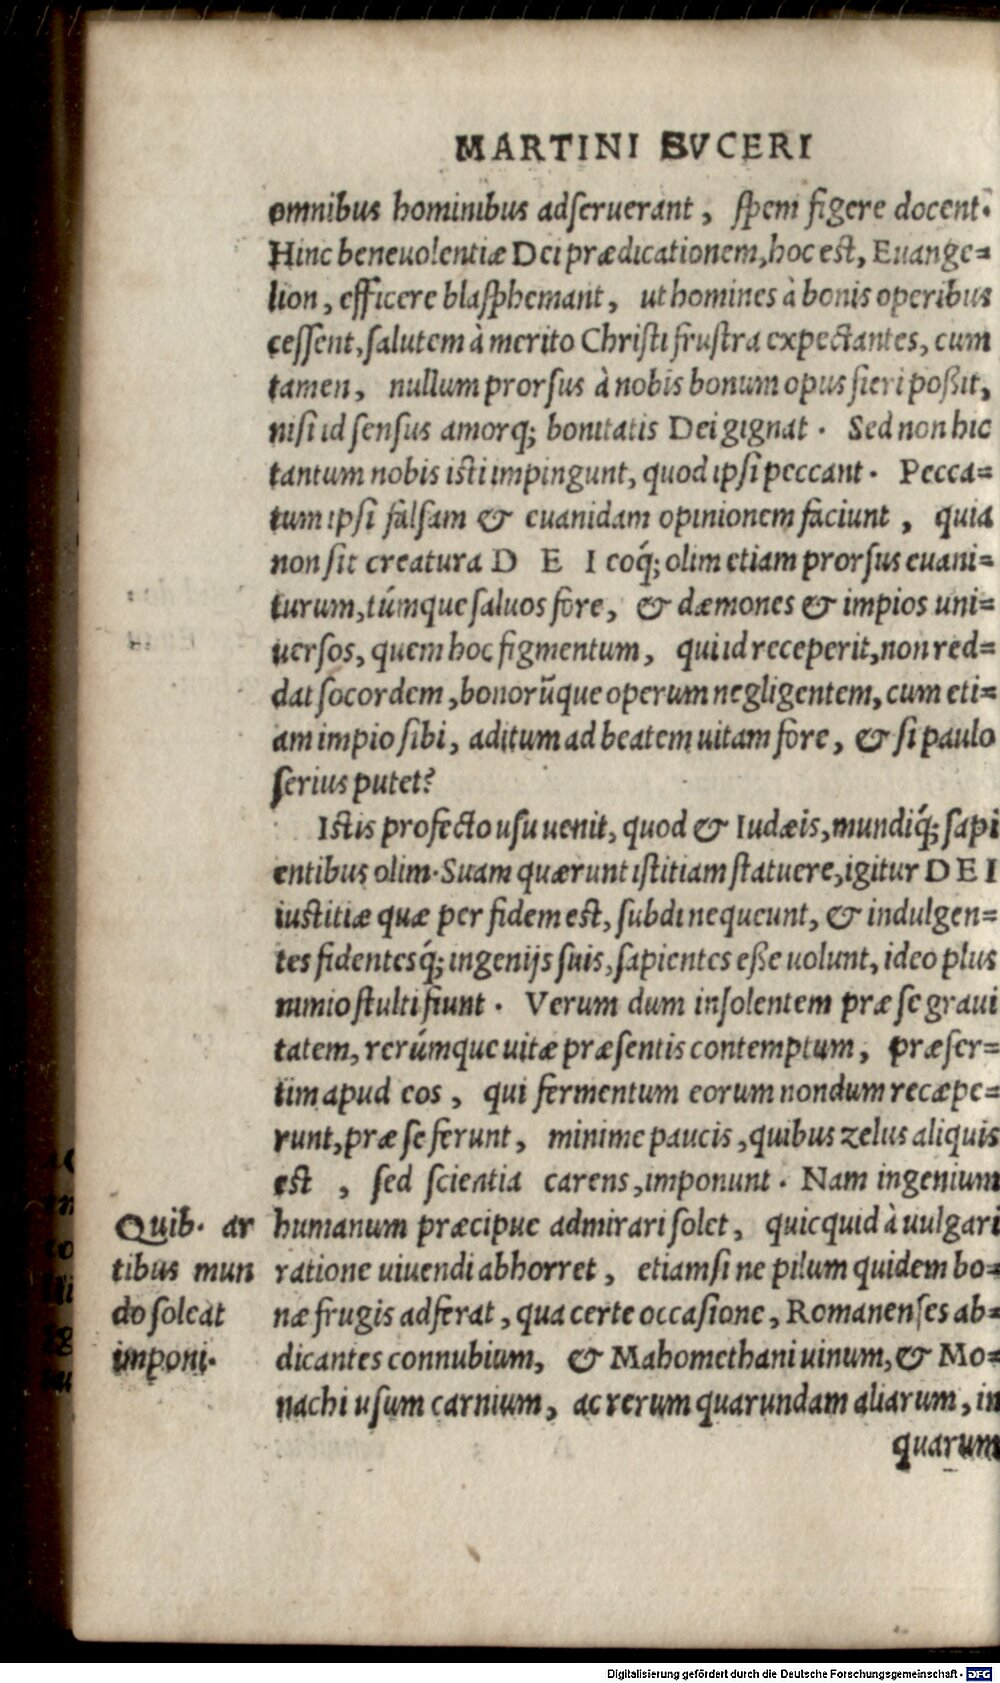 MARTINI BVCERI
omnibus hominibus adſeruerant, ſpem figere docent.
Hinc beneuolentiæ Dei prædicationem, hoc est, Euange=
lion, efficere blaſphemant, ut homines à bonis operibus
ceſſent, ſalutem à merito Chriſti fruſtra expectantes, cum
tamen, nullum prorſus à nobis bonum opus fieri poßit,
niſi id ſenſus amorq́; bonitatis Dei gignat. Sed non hic
tantum nobis isti impingunt, quod ipſi peccant. Pecca=
tum ipſi falſam & euanidam opinionem faciunt, quia
non ſit creatura D E I eoq́; olim etiam prorſus euani=
turum, túmque ſaluos fore, & dæmones & impios uni=
uerſos, quem hoc figmentum, qui id receperit, non red=
dat ſocordem, bonorūque operum negligentem, cum eti=
am impio ſibi, aditum ad beatem uitam fore, & ſi paulo
ſerius putet?
Istis profecto uſu uenit, quod & Iudæis, mundiq́; ſapi
entibus olim. Suam quærunt iſtitiam ſtatuere, igitur D E I
iustitiæ quæ per fidem est, ſubdi nequeunt, & indulgen=
tes fidentesq́; ingenijs ſuis, ſapientes eße uolunt, ideo plus
nimio ſtulti fiunt. Verum dum inſolentem præ ſe graui
tatem, rerúmque uitæ præſentis contemptum, præſer=
tim apud eos, qui fermentum eorum nondum recæpe=
runt, præ ſe ferunt, minime paucis, quibus zelus aliquis
est, ſed ſcientia carens, imponunt. Nam ingenium
humanum præcipue admirari ſolet, quicquid à uulgari
ratione uiuendi abhorret, etiamſi ne pilum quidem bo=
næ frugis adferat, qua certe occaſione, Romanenſes ab=
dicantes connubium, & Mahomethani uinum, & Mo=
nachi uſum carnium, ac rerum quarundam aliarum, in
quarum
Quib. ar
tibus mun
do ſoleat
imponi.
Digitalisierung gefördert durch die Deutsche Forschungsgemeinschaft - DFG